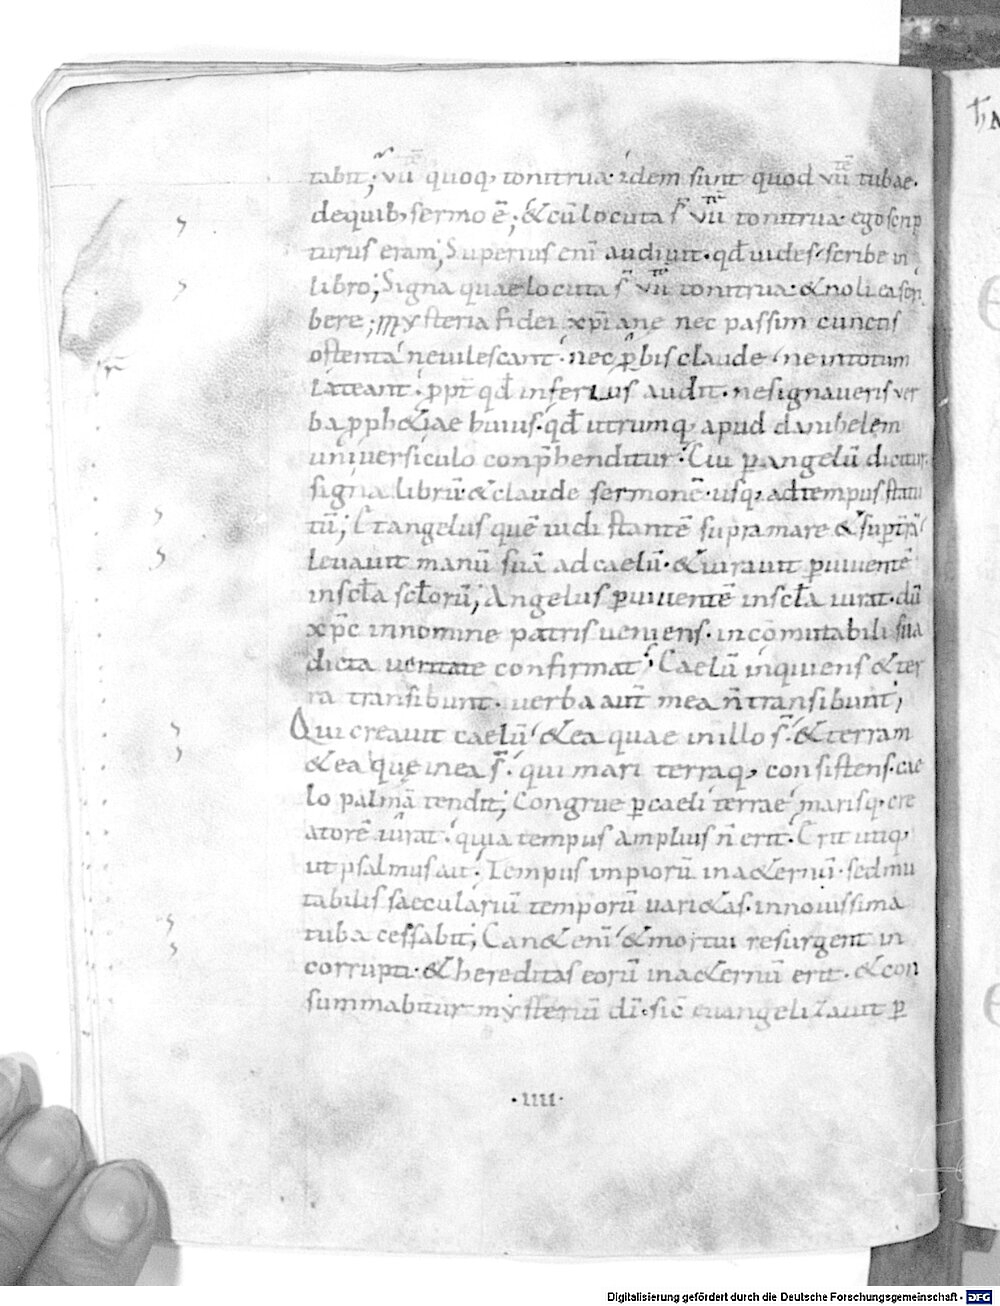 tabit; vii quoq, tonitrua· idem sunt quod vii tubae·
dequib, sermo ē; & cū locuta s̄ vii tonitrua· ego scrip
turus eram; Superius enī audiuit· qđ uides· scribe in
libro; Signa quae locuta s̄ vii tonitrua· & noli ea scri
bere; mysteria fidei xp̄iane nec passim cunctis
ostenta· neuilescant· nec p̄bis claude· ne intotum
lateant· ppt̄ qđ inferius audit· ne signaueris ver
ba pph&iae huius· qđ utrumq, apud danihelem
uni uersiculo conp̄henditur· Cui p̱ angelū dicitur
signa librū· & claude sermonē· usq, ad tempus statu
tū; Et angelus quē uidi stantē supra mare & sup t̄rā
leuauit manū suā ad caelū· & iurauit p̱ uiuentē
in scl̄a scl̄orū; Angelus p̱ uiuentē in scl̄a iurat· dū
xp̄c in nomine patris ueniens· incōmutabili sua
dicta ueritate confirmat· Caelū inquiens & ter
ra transibunt· uerba aut̄ mea n̄ transibunt;
Qui creauit caelū· & ea quae in illo s̄· & terram
& ea quę in ea s̄· qui mari terraq, consistens· cae
lo palmā tendit; Congrue p̱ caeli terrae marisq, cre
atorē iurat· quia tempus amplius n̄ erit· Erit utiq,
ut psalmus ait· Tempus impiorū in a&ernū· sed mu
tabilis saeculariū temporū uari&as· in nouissima
tuba cessabit; Can& enī & mortui resurgent in
corrupti· & hereditas eorū in a&ernū erit· & con
summabitur mysteriū dī· sic̄ euangelizauit p̱
·IIII·
Digitalisierung gefördert durch die Deutsche Forschungsgemeinschaft - DFG